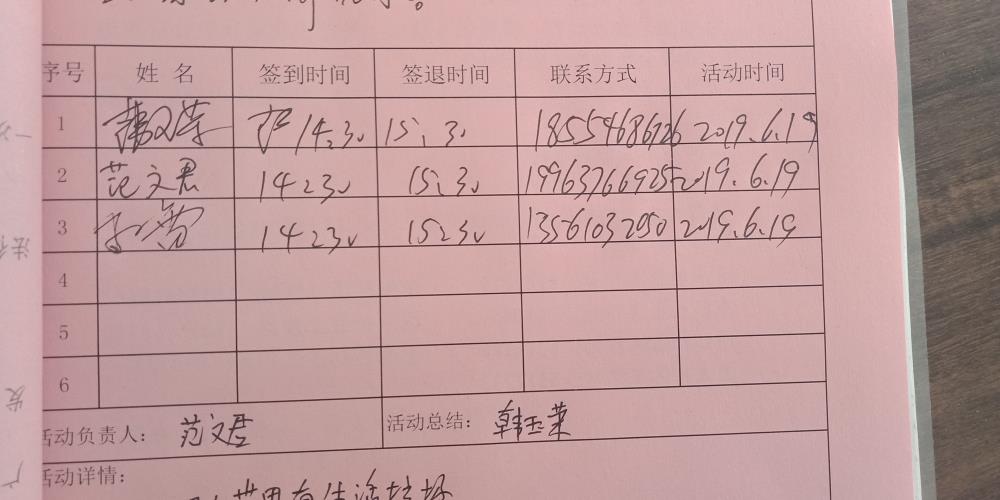 序号 姓名 签到时间 签退时间 联系方式 活动时间
1 14:30 15:30 18554686926 2019.6.19
2 范文君 14:30 15:30 19963766925 2019.6.19
3 14:30 15:30 13561032050 2019.6.19
4
5
6
活动负责人: 范文君 活动总结: 韩玉荣
活动详情: